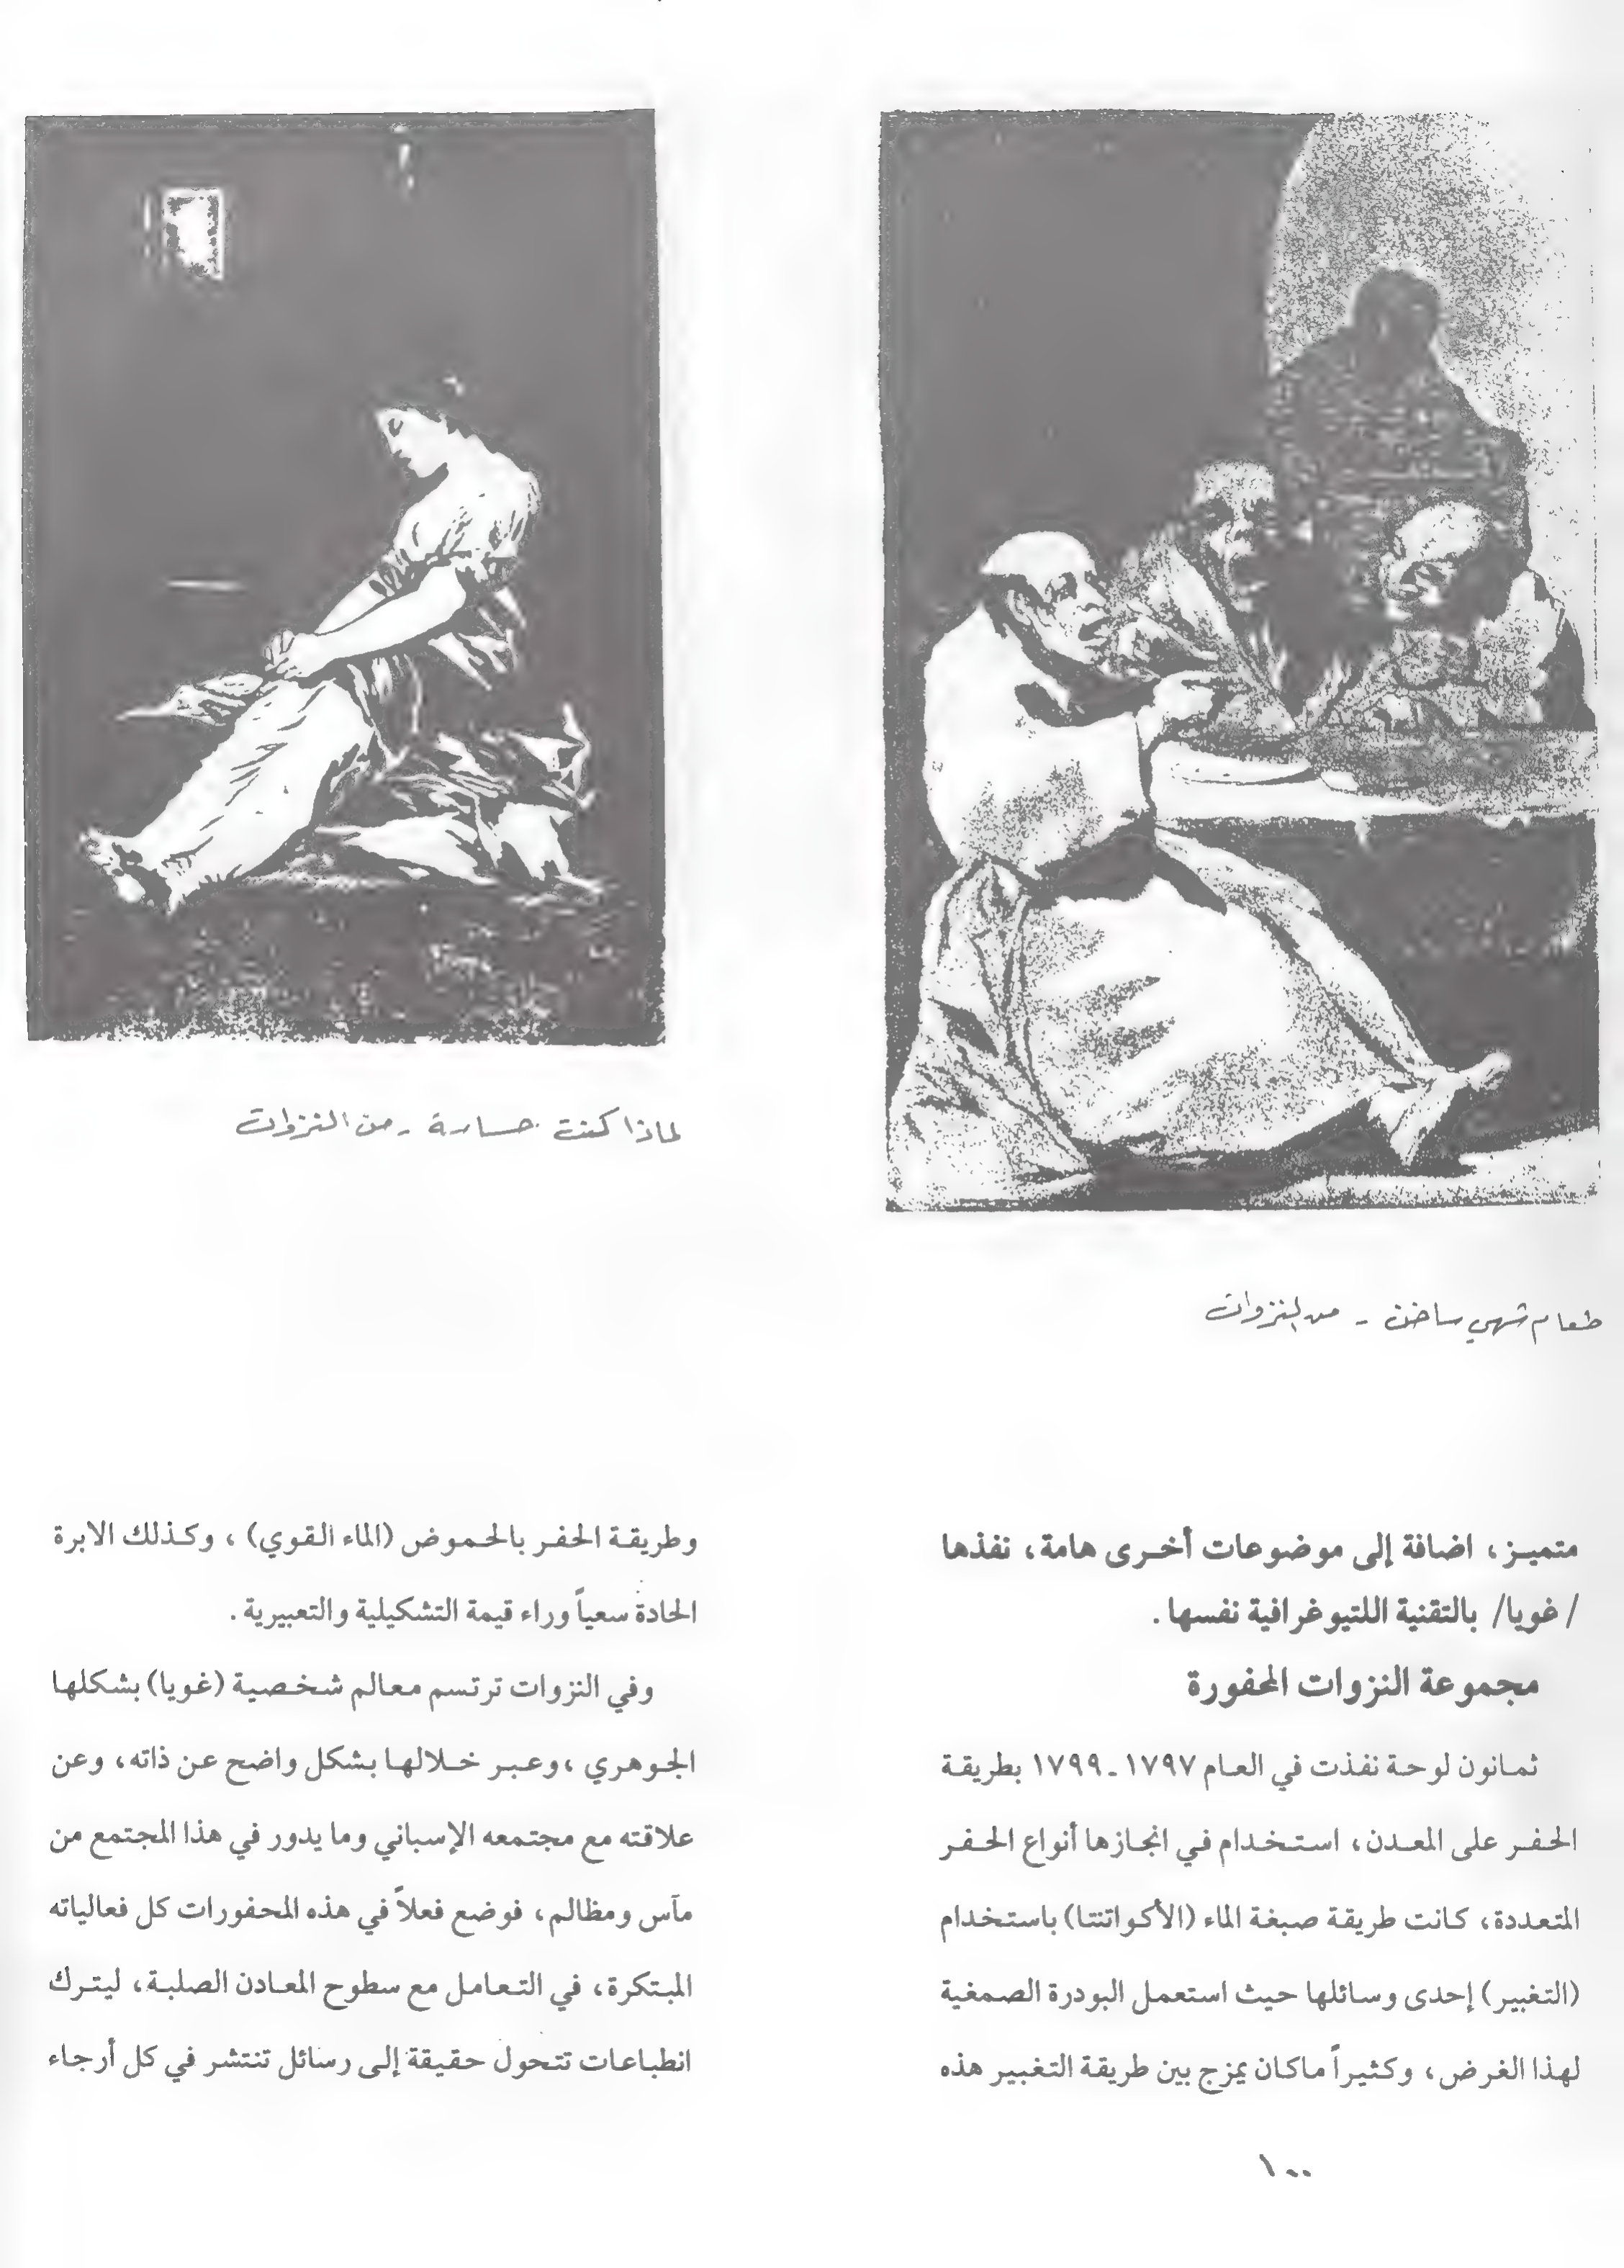 طعام شهي ساخن - من النزوات
لماذا كنت حساسة - من النزوات
متميز، اضافة إلى موضوعات أخرى هامة، نفذها
/غويا/ بالتقنية اللتيوغرافية نفسها.
مجموعة النزوات المحفورة
ثمانون لوحة نفذت في العام ١٧٩٧ ـ ١٧٩٩ بطريقة
الحفر على المعدن، استخدام في انجازها أنواع الحفر
المتعددة، كانت طريقة صبغة الماء (الأكواتنتا) باستخدام
(التغبير) إحدى وسائلها حيث استعمل البودرة الصمغية
لهذا الغرض، وكثيراً ماكان يمزج بين طريقة التغبير هذه
وطريقة الحفر بالحموض (الماء القوي)، وكذلك الابرة
الحادة سعياً وراء قيمة التشكيلية والتعبيرية.
وفي النزوات ترتسم معالم شخصية (غويا) بشكلها
الجوهري، وعبر خلالها بشكل واضح عن ذاته، وعن
علاقته مع مجتمعه الإسباني وما يدور في هذا المجتمع من
مآس ومظالم، فوضع فعلاً في هذه المحفورات كل فعالياته
المبتكرة، في التعامل مع سطوح المعادن الصلبة، ليترك
انطباعات تتحول حقيقة إلى رسائل تنتشر في كل أرجاء
١٠٠